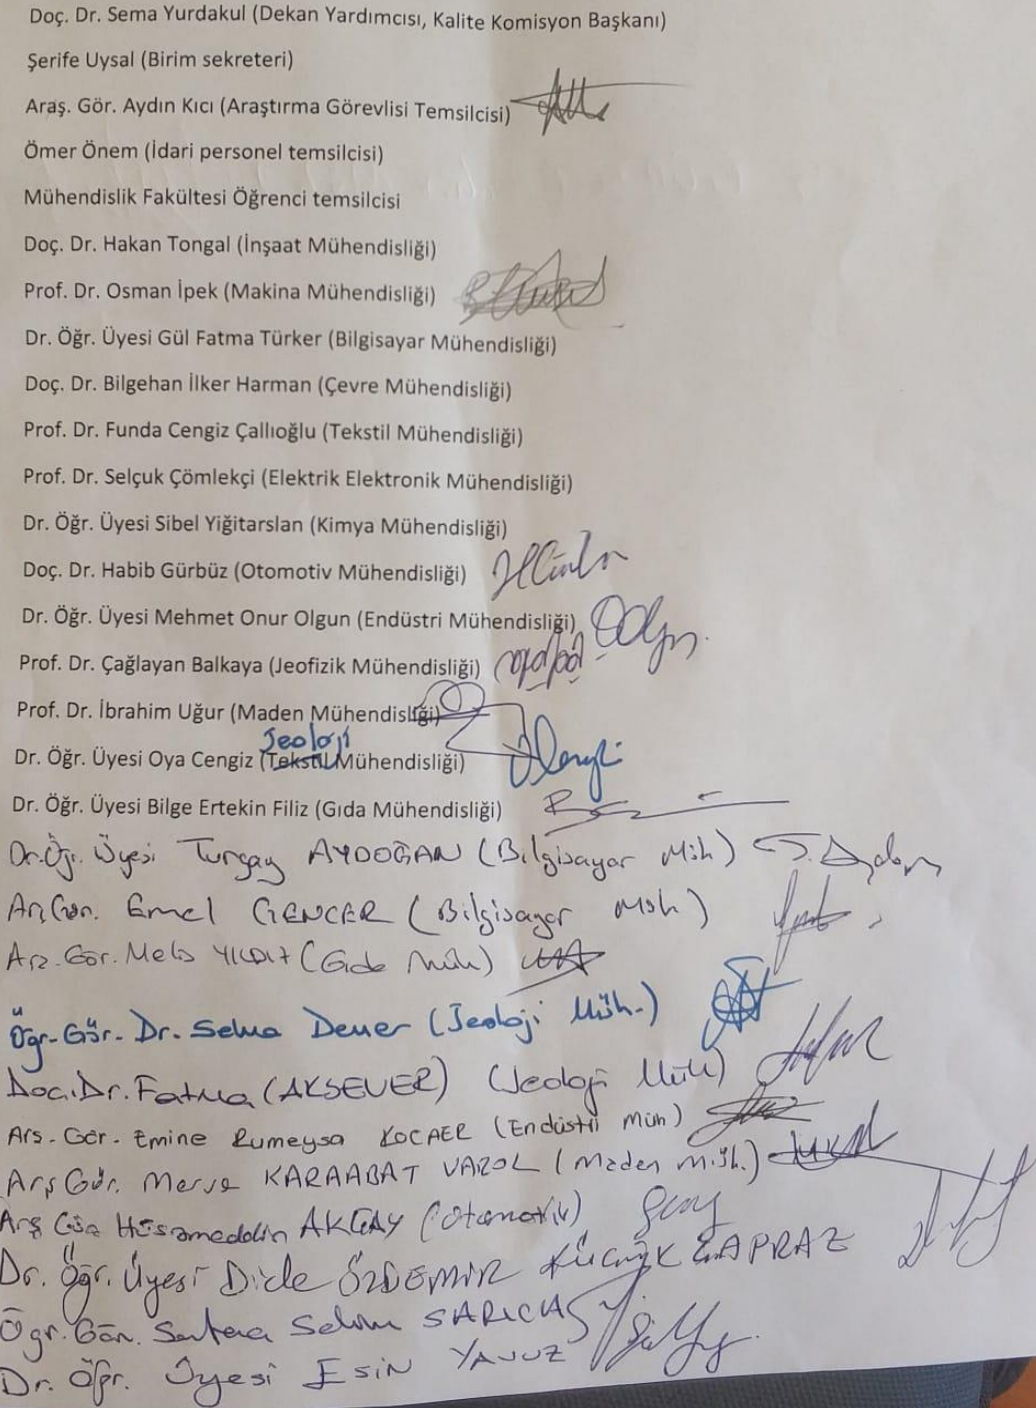 Doç. Dr. Sema Yurdakul (Dekan Yardımcısı, Kalite Komisyon Başkanı)
Şerife Uysal (Birim sekreteri)
Araş. Gör. Aydın Kıcı (Araştırma Görevlisi Temsilcisi)
Ömer Önem (İdari personel temsilcisi)
Mühendislik Fakültesi Öğrenci temsilcisi
Doç. Dr. Hakan Tongal (İnşaat Mühendisliği)
Prof. Dr. Osman İpek (Makina Mühendisliği)
Dr. Öğr. Üyesi Gül Fatma Türker (Bilgisayar Mühendisliği)
Doç. Dr. Bilgehan İlker Harman (Çevre Mühendisliği)
Prof. Dr. Funda Cengiz Çallıoğlu (Tekstil Mühendisliği)
Prof. Dr. Selçuk Çömlekçi (Elektrik Elektronik Mühendisliği)
Dr. Öğr. Üyesi Sibel Yiğitarslan (Kimya Mühendisliği)
Doç. Dr. Habib Gürbüz (Otomotiv Mühendisliği)
Dr. Öğr. Üyesi Mehmet Onur Olgun (Endüstri Mühendisliği)
Prof. Dr. Çağlayan Balkaya (Jeofizik Mühendisliği)
Prof. Dr. İbrahim Uğur (Maden Mühendisliği)
Jeoloji
Dr. Öğr. Üyesi Oya Cengiz (Tekstil Mühendisliği)
Dr. Öğr. Üyesi Bilge Ertekin Filiz (Gıda Mühendisliği)
Dr. Öğr. Üyesi Turgay AYDOĞAN (Bilgisayar Müh)
Arş. Gör. Emel GENCER (Bilgisayar Müh)
Arş. Gör. Melis YILDIZ (Gıda Müh)
Öğr. Gör. Dr. Selma Demer (Jeoloji Müh.)
Doç. Dr. Fatma (AKSEVER) (Jeoloji Müh)
Arş. Gör. Emine Rumeysa KOCAER (Endüstri Müh)
Arş Gör. Merve KARAABAT VAROL (Maden Müh.)
Arş Gör Hüsameddin AKÇAY (Otomotiv)
Dr. Öğr. Üyesi Dicle ÖZDEMİR KÜÇÜKÇAPRAZ
Öğr. Gör. Selim SARICA
Dr. Öğr. Üyesi Esin YAVUZ